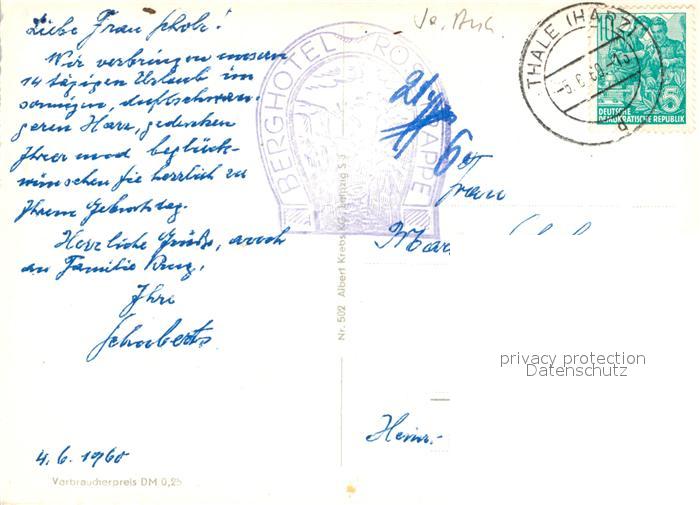 Liebe Frau Scholz!
Wir verbringen unsern
14 tägigen Urlaub im
sonnigen, duftschwan-
geren Harz, gedenken
Ihrer und beglück-
wünschen Sie herzlich zu
Ihrem Geburtstag.
Herzliche Grüße, auch
an Familie Krug,
Ihre
Schuberts
4.6.1960
Verbraucherpreis DM 0,25
Nr. 502 Albert Krebs KG, Leipzig S 3
BERGHOTEL ROSSTRAPPE
THALE (HARZ)
-5.6.60.-15
10
5
DEUTSCHE
DEMOKRATISCHE REPUBLIK
Frau
Mar
privacy protection
Datenschutz
Heinr.-